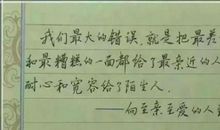 我们最大的错误,就是把最差
和最糟糕的一面都给了最亲近的人
耐心和宽容给了陌生人.
——向至亲至爱的人